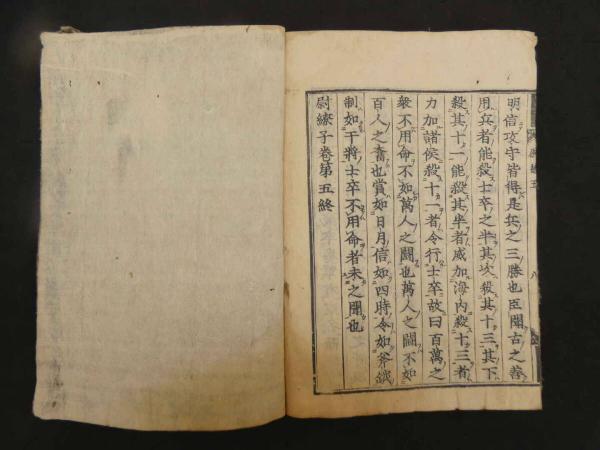 明信攻守皆得是兵之三勝也臣聞古之善
用兵者能殺士卒之半其次殺其十三其下
殺其十一能殺其半者威加海內殺十三者
力加諸侯殺十一者令行士卒故曰百萬之
衆不用命不如萬人之鬪也萬人之鬪不如
百人之奮也賞如日月信如四時令如斧鉞
制如干將士卒不用命者未之聞也
尉繚子卷第五終